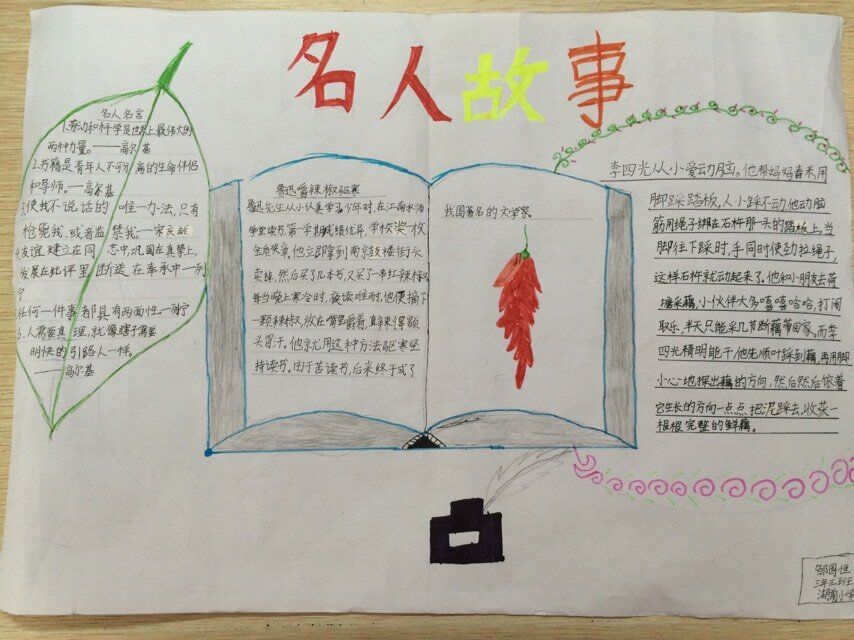 名人故事
名人名言
1.劳动和科学是世界上最伟大的
两种力量。——高尔基
2.书籍是青年人不可分离的生命伴侣
和导师。——高尔基
3.使我不说话的唯一办法,只有
枪毙我,或者监禁我—宋庆龄
4.友谊建立在同志中,巩固在真挚上,
发展在批评里,断送在奉承中—列
宁
5.任何一件事都具有两面性—列宁
6.人需要真理,就像瞎子需要
明快的引路人一样。
——高尔基
鲁迅嚼辣椒驱寒
鲁迅先生从小认真学习少年时,在江南水师
学堂读书,第一学期成绩优异,学校奖枚
金质奖章,他立即拿到南京鼓楼街头
卖掉,然后买了几本书,又买了一串红辣椒
每当晚上寒冷时,夜读难耐,他便摘下
一颗辣椒,放在嘴里嚼着,直辣得额
头冒汗。他就用这种方法驱寒坚
持读书。由于苦读书,后来终于成了
我国著名的文学家
李四光从小爱动脑。他帮妈妈舂米用
脚踩踏板,人小踩不动,他动脑
筋用绳子绑在石杵那一头的踏板上,当
脚往下踩时,手同时使劲拉绳子,
这样石杵就动起来了。他和小朋友去荷
塘采藕,小伙伴大多嘻嘻哈哈,打闹
取乐,半天只能采几节断藕带回家。而李
四光精明能干,他先顺叶踩到藕,再用脚
小心地探出藕的方向,然后然后依着
它生长的方向一点点把泥踩去,收获一
根根完整的鲜藕。
邹国恒
三年三班
湖前小学